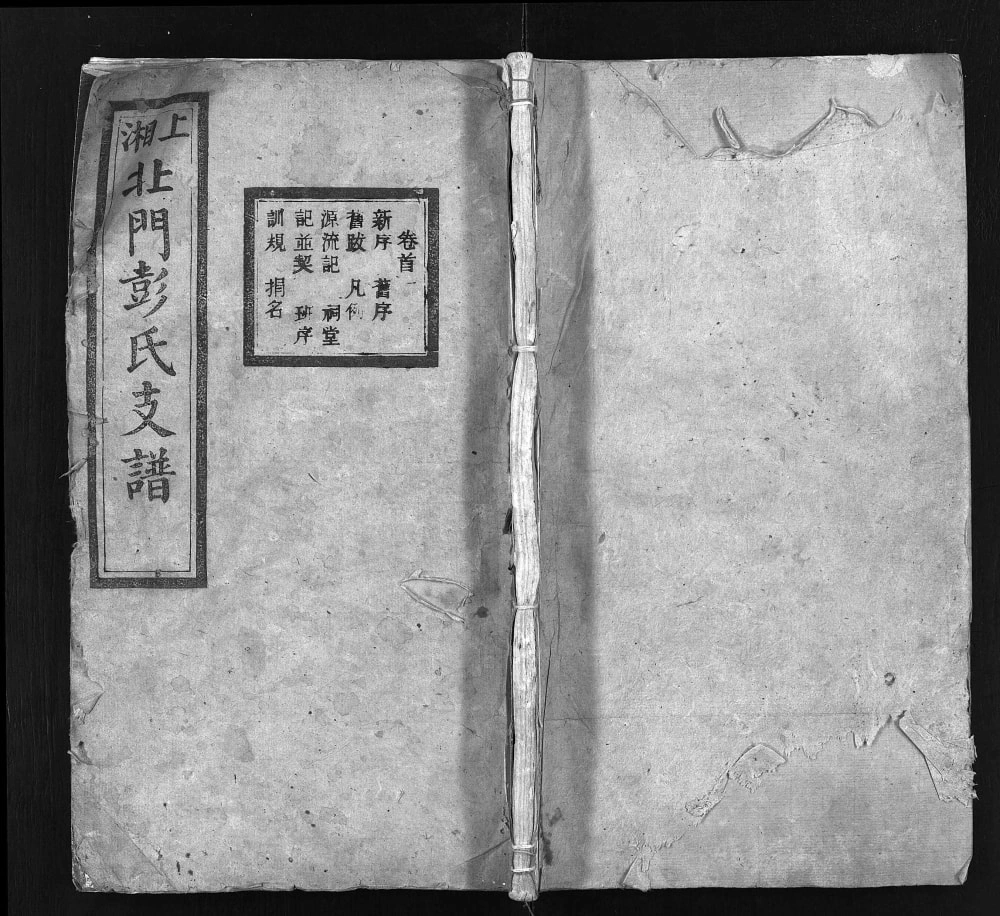 上湘北門彭氏支譜
卷首一
新序 舊序
舊跋 凡例
源流記 祠堂
記並契 班序
訓規 捐名